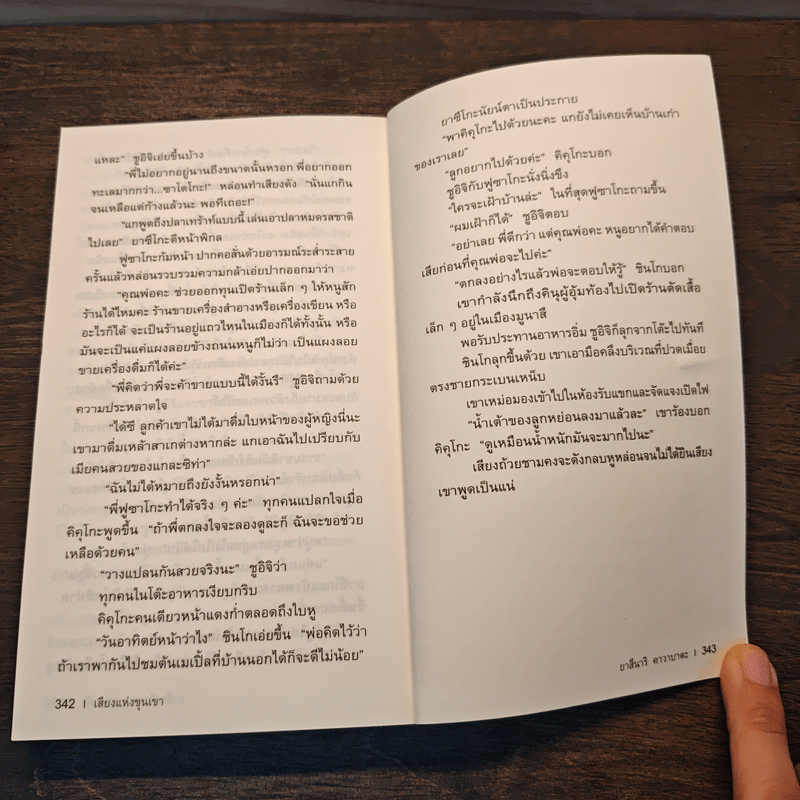 แหละ” ชูอิจิเอ่ยขึ้นบ้าง
“พี่ไม่อยากอยู่นานถึงขนาดนั้นหรอก พี่อยากออก
ทะเลมากกว่า...ซาโตโกะ!” หล่อนทำเสียงดัง “นั่นแกกิน
จนเหลือแต่ก้างแล้วนะ พอทีเถอะ!”
“แกพูดถึงปลาเทร้าท์แบบนี้ เล่นเอาปลาหมดรสชาติ
ไปเลย” ยาซึโกะตีหน้าพิกล
ฟูซาโกะก้มหน้า ปากคอสั่นด้วยอารมณ์ระส่ำระสาย
ครั้นแล้วหล่อนรวบรวมความกล้าเอ่ยปากออกมาว่า
“คุณพ่อคะ ช่วยออกทุนเปิดร้านเล็ก ๆ ให้หนูสัก
ร้านได้ไหมคะ ร้านขายเครื่องสำอางหรือเครื่องเขียน หรือ
อะไรก็ได้ จะเป็นร้านอยู่แถวไหนในเมืองก็ได้ทั้งนั้น หรือ
มันจะเป็นแค่แผงลอยข้างถนนหนูก็ไม่ว่า เป็นแผงลอย
ขายเครื่องดื่มก็ได้ค่ะ”
“พี่คิดว่าพี่จะค้าขายแบบนี้ได้งั้นรึ” ชูอิจิถามด้วย
ความประหลาดใจ
“ได้ซี ลูกค้าเขาไม่ได้มาดื่มใบหน้าของผู้หญิงนี่นะ
เขามาดื่มเหล้าสาเกต่างหากล่ะ แกเอาฉันไปเปรียบกับ
เมียคนสวยของแกละซิท่า”
“ฉันไม่ได้หมายถึงยังงั้นหรอกน่า”
“พี่ฟูซาโกะทำได้จริง ๆ ค่ะ” ทุกคนแปลกใจเมื่อ
คิคุโกะพูดขึ้น “ถ้าพี่ตกลงใจจะลองดูละก็ ฉันจะขอช่วย
เหลือด้วยคน”
“วางแปลนกันสวยจริงนะ” ชูอิจิว่า
ทุกคนในโต๊ะอาหารเงียบกริบ
คิคุโกะคนเดียวหน้าแดงก่ำตลอดถึงใบหู
“วันอาทิตย์หน้าว่าไง” ชินโกเอ่ยขึ้น “พ่อคิดไว้ว่า
ถ้าเราพากันไปชมต้นเมเปิ้ลที่บ้านนอกได้ก็จะดีไม่น้อย”
342 | เสียงแห่งขุนเขา
ยาซึโกะนัยน์ตาเป็นประกาย
“พาคิคุโกะไปด้วยนะคะ แกยังไม่เคยเห็นบ้านเก่า
ของเราเลย”
“ลูกอยากไปด้วยค่ะ” คิคุโกะบอก
ชูอิจิกับฟูซาโกะนั่งนิ่งขึง
“ใครจะเฝ้าบ้านล่ะ” ในที่สุดฟูซาโกะถามขึ้น
“ผมเฝ้าก็ได้” ชูอิจิตอบ
“อย่าเลย พี่ดีกว่า แต่คุณพ่อคะ หนูอยากได้คำตอบ
เสียก่อนที่คุณพ่อจะไปค่ะ”
“ตกลงอย่างไรแล้วพ่อจะตอบให้รู้” ชินโกบอก
เขากำลังนึกถึงคินุผู้อุ้มท้องไปเปิดร้านตัดเสื้อ
เล็ก ๆ อยู่ในเมืองนูมาสึ
พอรับประทานอาหารอิ่ม ชูอิจิก็ลุกจากโต๊ะไปทันที
ชินโกลุกขึ้นด้วย เขาเอามือคลึงบริเวณที่ปวดเมื่อย
ตรงชายกระเบนเหน็บ
เขาเหม่อมองเข้าไปในห้องรับแขกและจัดแจงเปิดไฟ
“น้ำเต้าของลูกหย่อนลงมาแล้วละ” เขาร้องบอก
คิคุโกะ “ดูเหมือนน้ำหนักมันจะมากไปนะ”
เสียงถ้วยชามคงจะดังกลบหูหล่อนจนไม่ได้ยินเสียง
เขาพูดเป็นแน่
ยาสึนาริ คาวาบาตะ | 343